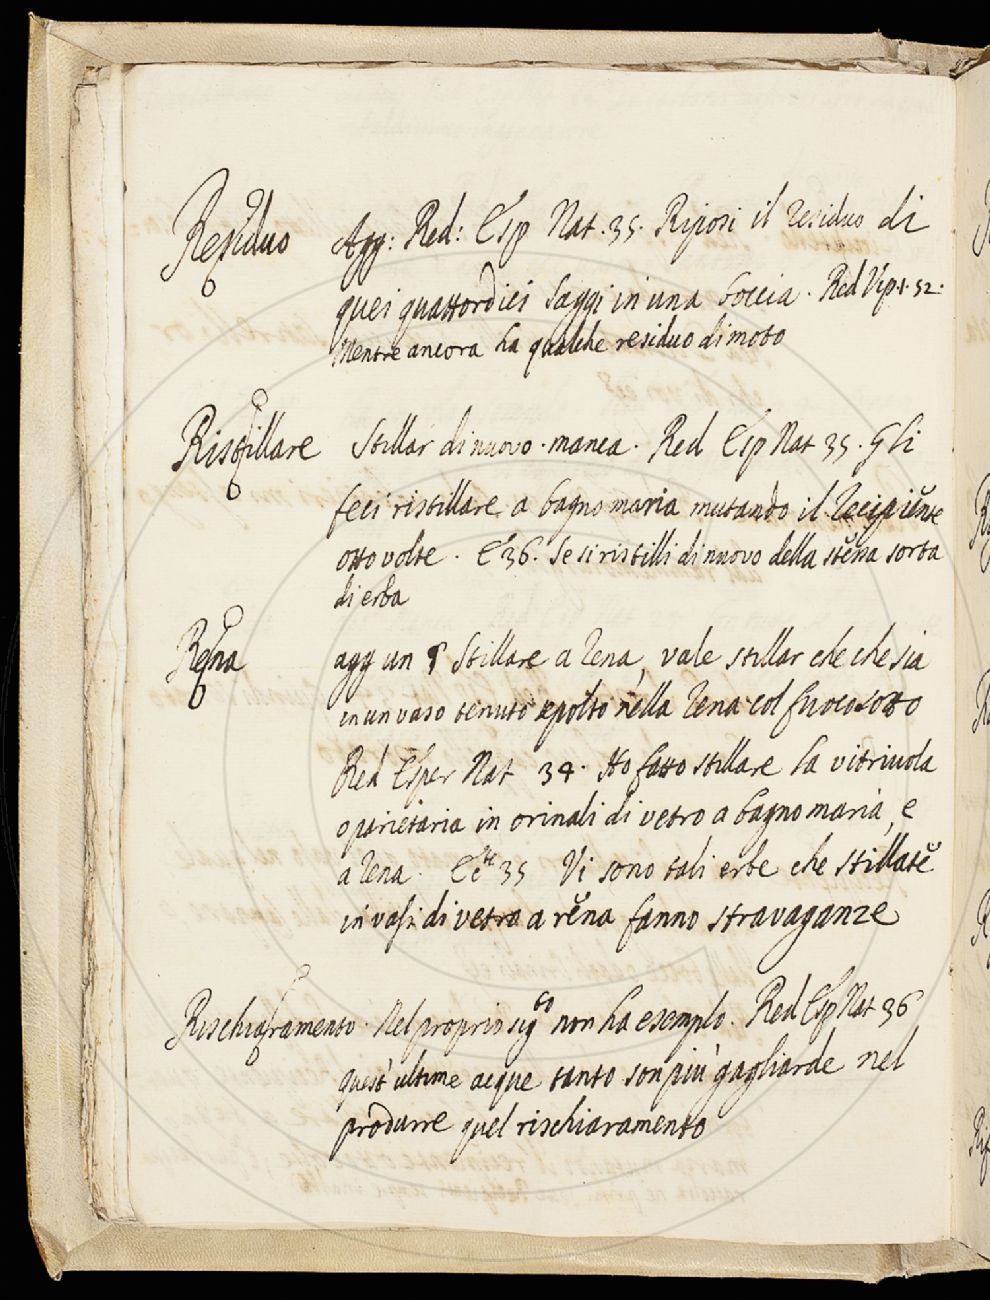 Residuo Agg: Red: Esp Nat. 35. Riposi il Residuo di
quei quattordici saggi in una boccia. Red Vip. 1. 52.
Mentre ancora ha qualche residuo di moto
Ristillare Stillar di nuovo. manca. Red Esp Nat 35. Gli
feci ristillare a bagno maria mutando il Recipiente
otto volte. E 36. Se si ristilli di nuovo della stessa sorta
di erba
Rena agg un § Stillare a Rena, vale stillar che che sia
in un vaso tenuto sepolto nella Rena col fuoco sotto
Red Esper Nat 34. Ho fatto stillare la vitriuola
o parietaria in orinali di vetro a bagno maria, e
a Rena. E c.te 35 Vi sono tali erbe che stillate
in vasi di vetro a rena fanno stravaganze
Rischiaramento. Nel proprio sig.to non ha esemplo. Red Esp Nat 36
quest' ultime acque tanto son più gagliarde nel
produrre quel rischiaramento